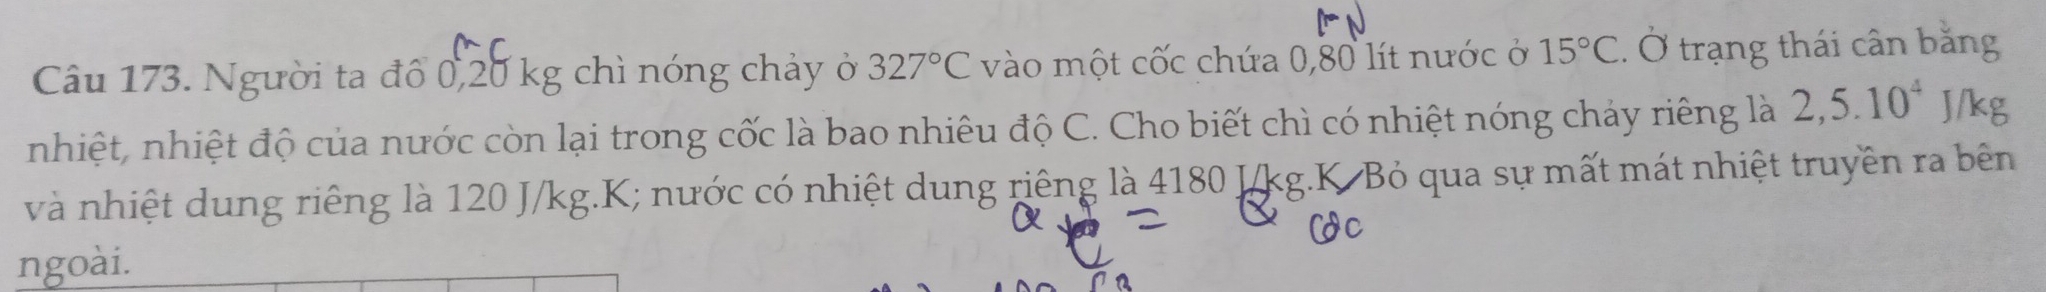 mc
mN
Câu 173. Người ta đổ 0,20 kg chì nóng chảy ở 327°C vào một cốc chứa 0,80 lít nước ở 15°C. Ở trạng thái cân bằng
nhiệt, nhiệt độ của nước còn lại trong cốc là bao nhiêu độ C. Cho biết chì có nhiệt nóng chảy riêng là 2,5.10⁴ J/kg
và nhiệt dung riêng là 120 J/kg.K; nước có nhiệt dung riêng là 4180 J/kg.K. Bỏ qua sự mất mát nhiệt truyền ra bên
ngoài.
Q = Q cốc